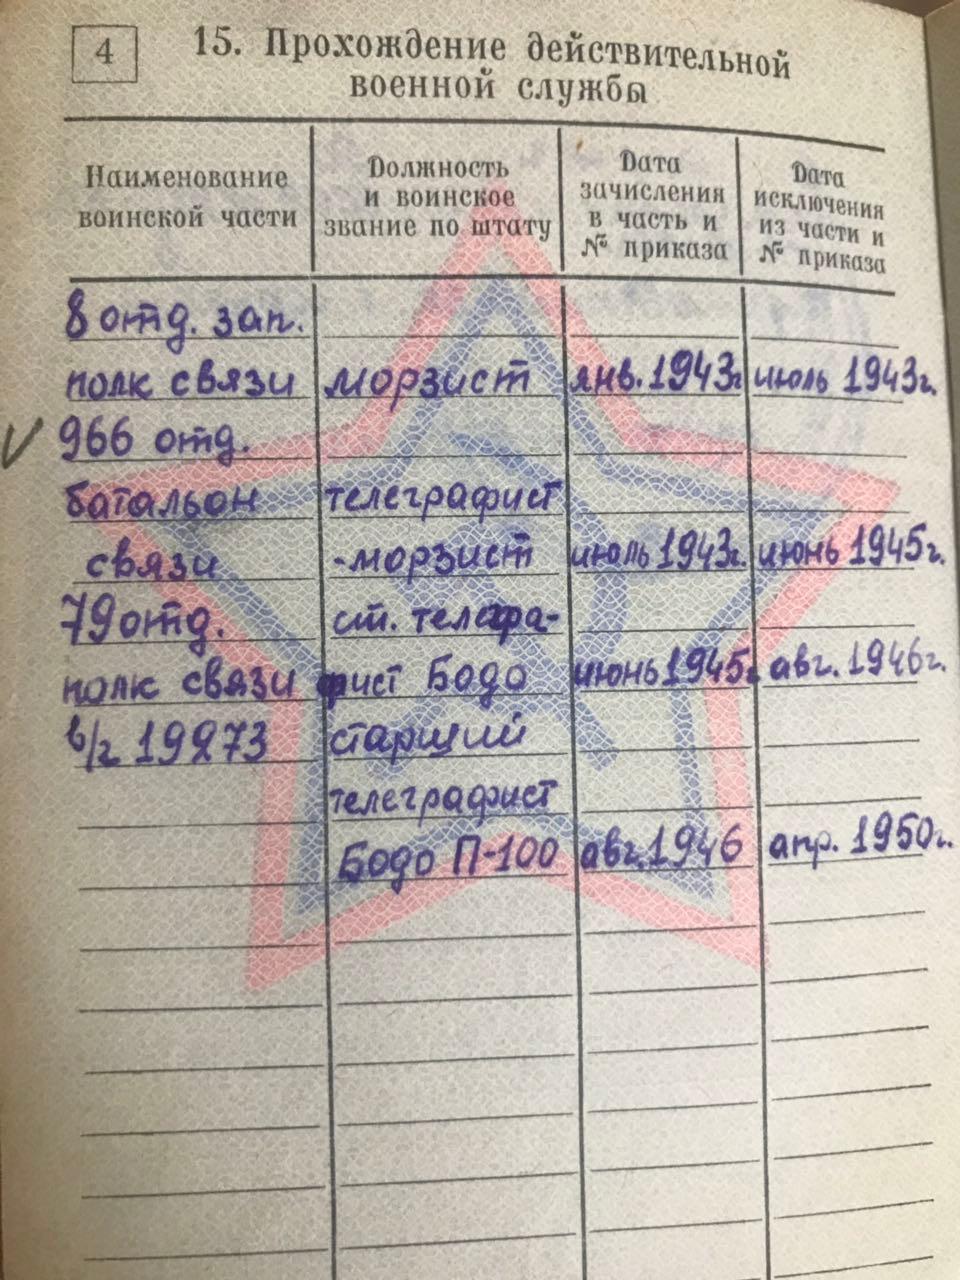 4
15. Прохождение действительной
военной службы
Наименование
воинской части
Должность
и воинское
звание по штату
Дата
зачисления
в часть и
№ приказа
Дата
исключения
из части и
№ приказа
8 отд. зап.
полк связи морзист янв. 1943г июль 1943г.
V 966 отд.
батальон телеграфист
связи -морзист июль 1943г. июнь 1945г.
79 отд. ст. телегра-
полк связи фист Бодо июнь 1945г. авг. 1946г.
в/г 19273 старщий
телеграфист
Бодо П-100 авг. 1946 апр. 1950г.